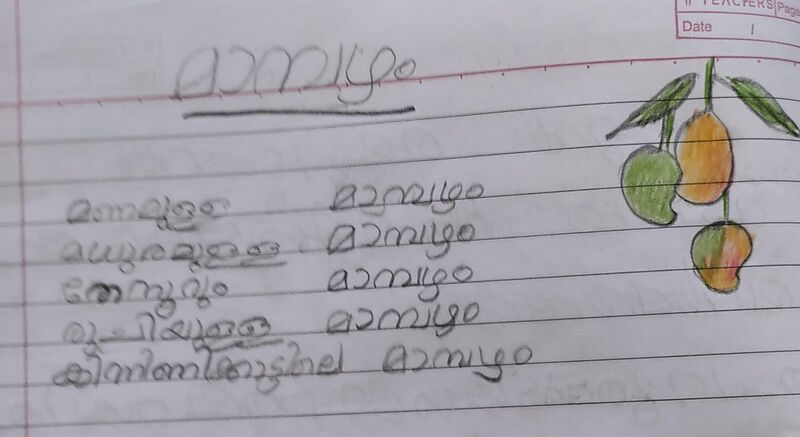 TEACHERS Page
Date
മാമ്പഴം
മണമുള്ള മാമ്പഴം
മധുരമുള്ള മാമ്പഴം
മാമ്പഴം
രുചിയുള്ള മാമ്പഴം
മാമ്പഴം